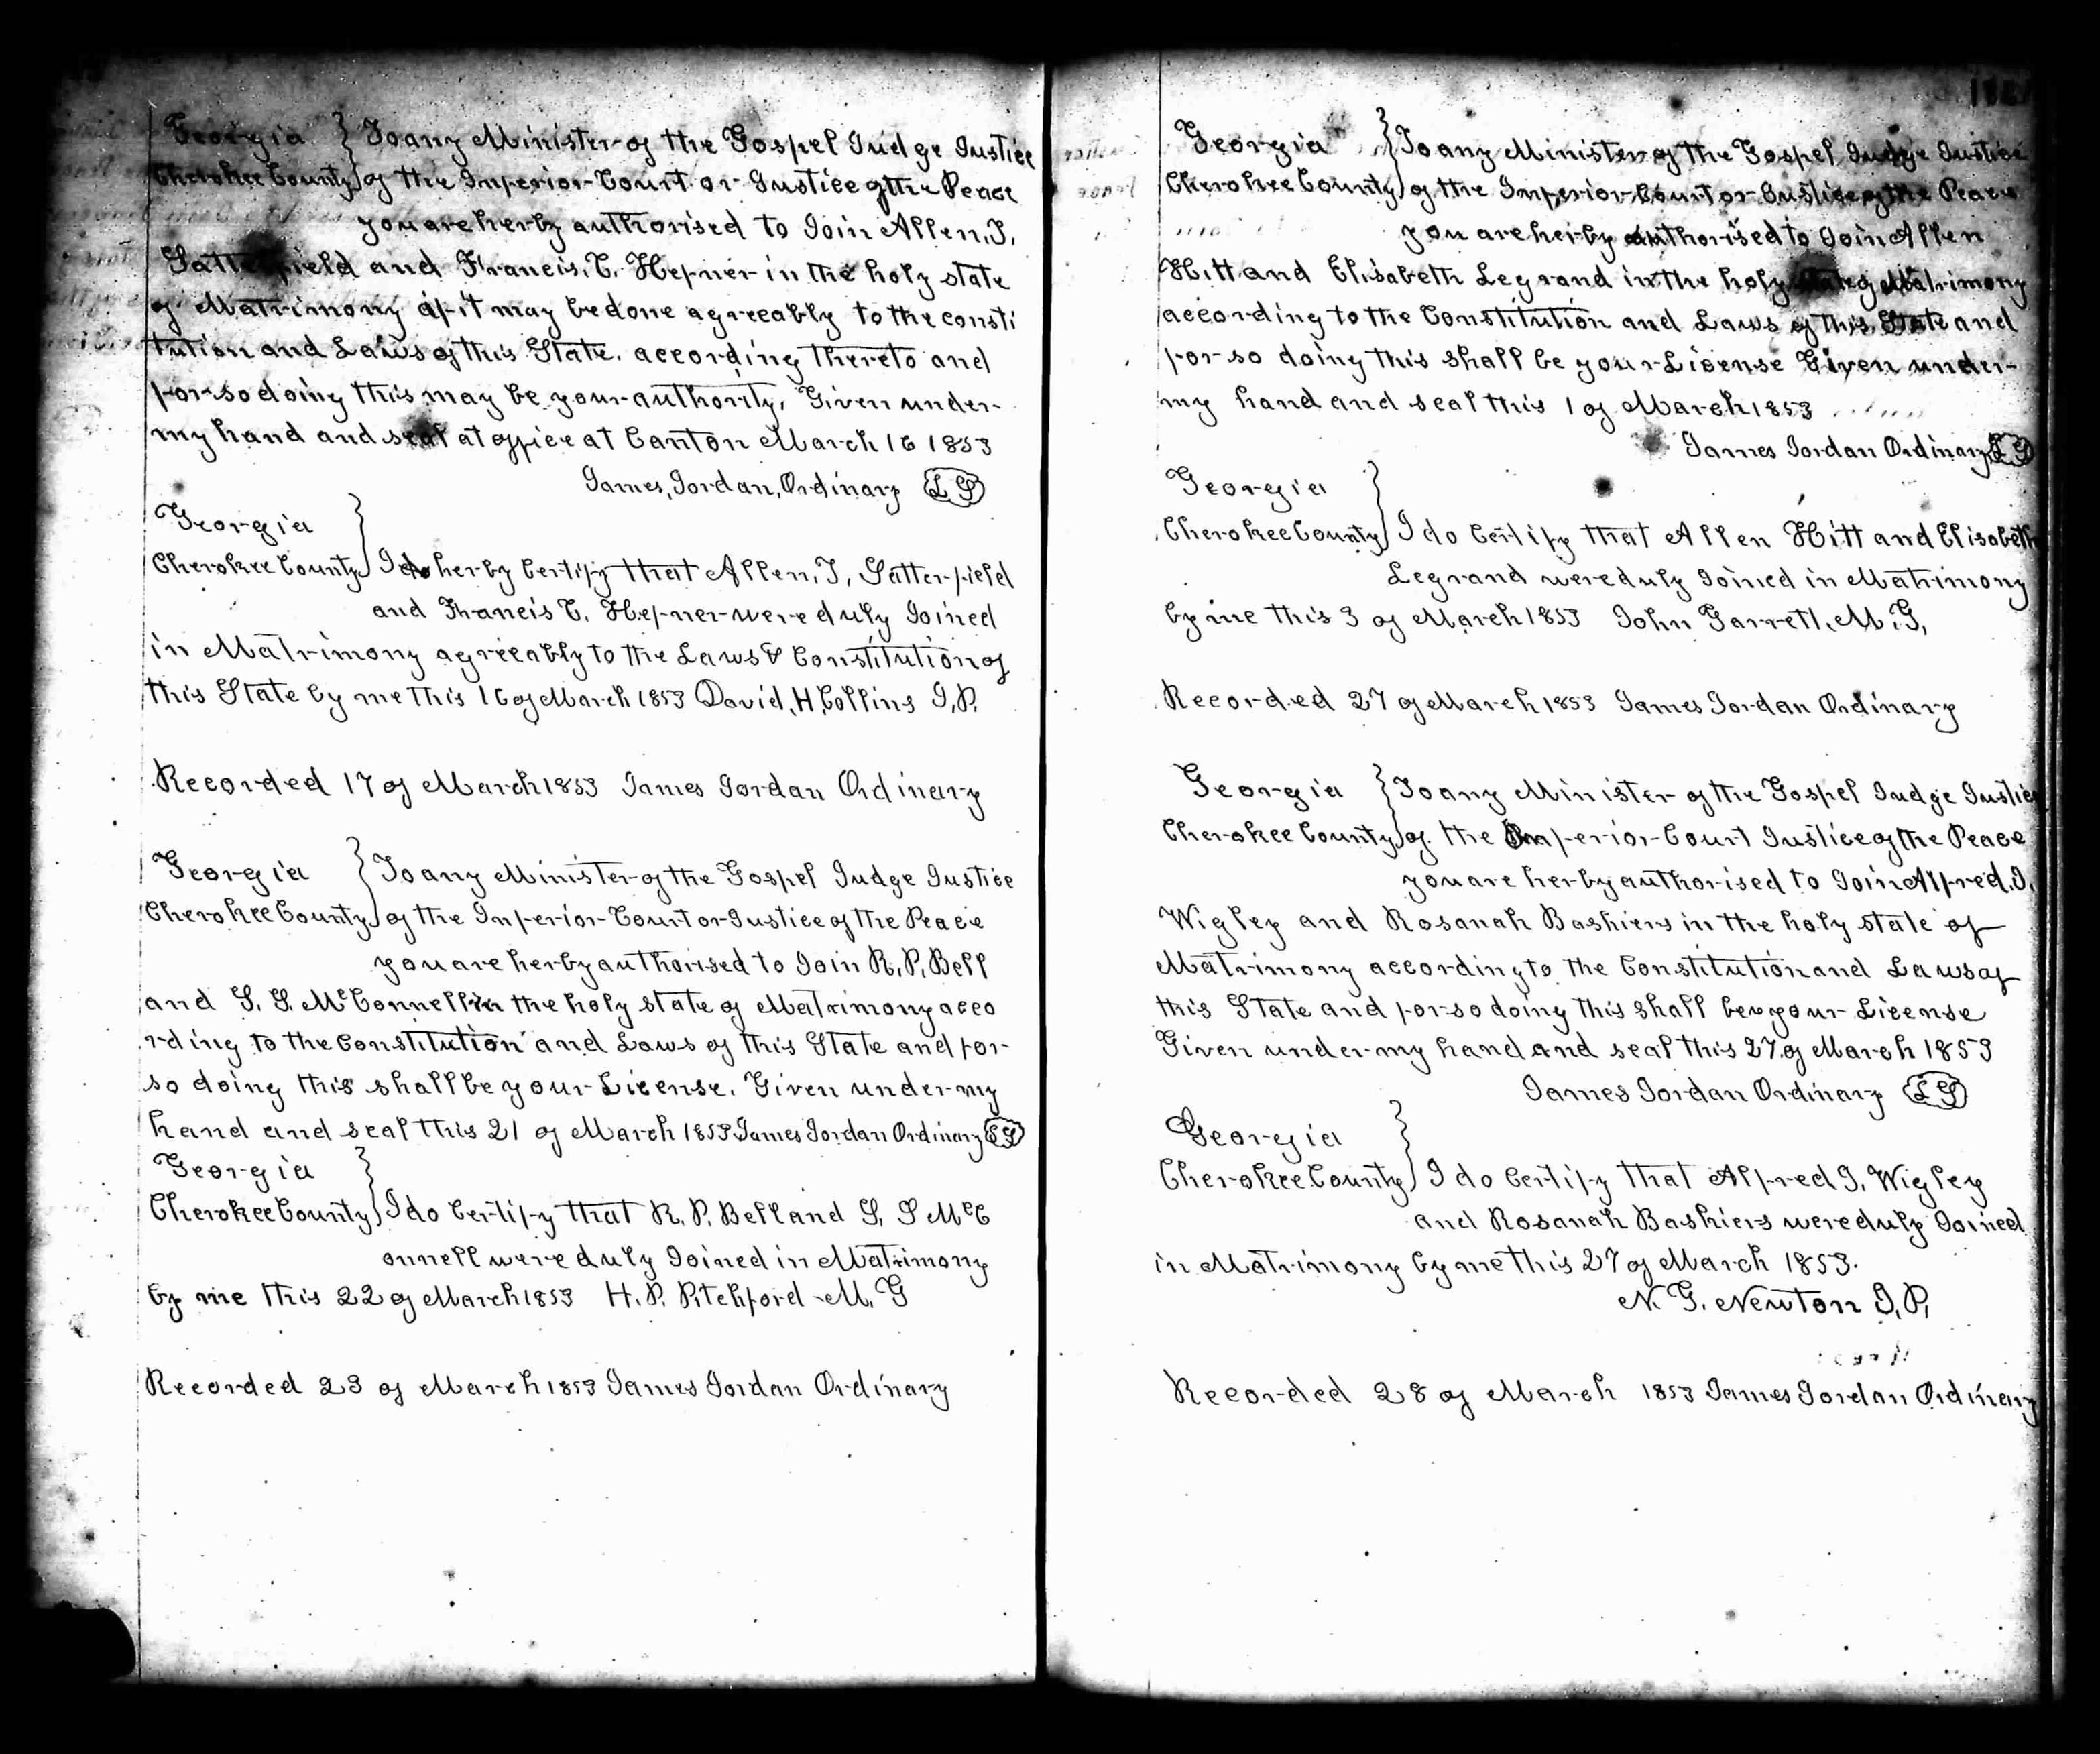 Georgia } To any Minister of the Gospel Judge Justice
Cherokee County } of the Inferior Court or Justice of the Peace
you are herby authorised to Join Allen, J,
Satterfield and Francis, C, Hefner in the holy state
of Matrimony if it may be done agreeably to the consti
tution and Laws of this State, according thereto and
for so doing this may be your authority, Given under
my hand and seal at office at Canton March 16 1853
James, Jordan, Ordinary LS
Georgia }
Cherokee County } I do herby Certify that Allen, J, Satterfield
and Francis C. Hefner were duly Joined
in Matrimony agreeably to the Laws & Constitution of
this State by me this 16 of March 1853 David, H, Collins J,P,
Recorded 17 of March 1853 James Jordan Ordinary
Georgia } To any Minister of the Gospel Judge Justice
Cherokee County } of the Inferior Court or Justice of the Peace
you are herby authorised to Join R, P, Bell
and S. S. McConnell in the holy state of Matrimony acco
rding to the Constitution and Laws of this State and for
so doing this shall be your License, Given under my
hand and seal this 21 of March 1853 James Jordan Ordinary LS
Georgia }
Cherokee County } I do Certify that R. P. Bell and S, S McC
onnell were duly Joined in Matrimony
by me this 22 of March 1853 H. P. Pitchford M. G
Recorded 23 of March 1853 James Jordan Ordinary
Georgia } To any Minister of the Gospel Judge Justice
Cherokee County } of the Inferior Court or Justice of the Peace
you are herby authorised to Join Allen
Hitt and Elisabeth Legrand in the holy state of Matrimony
according to the Constitution and Laws of this State and
for so doing this shall be your License Given under
my hand and seal this 1 of March 1853
James Jordan Ordinary LS
Georgia }
Cherokee County } I do Certify that Allen Hitt and Elisabeth
Legrand were duly Joined in Matrimony
by me this 3 of March 1853 John Garrett, M, G,
Recorded 27 of March 1853 James Jordan Ordinary
Georgia } To any Minister of the Gospel Judge Justice
Cherokee County } of the Inferior Court Justice of the Peace
you are herby authorised to Join Alfred, J,
Wigley and Rosanah Bashiers in the holy state of
Matrimony according to the Constitution and Laws of
this State and for so doing this shall be your License
Given under my hand and seal this 27 of March 1853
James Jordan Ordinary LS
Georgia }
Cherokee County } I do Certify that Alfred J, Wigley
and Rosanah Bashiers were duly Joined
in Matrimony by me this 27 of March 1853.
N. G. Newton J, P,
Recorded 28 of March 1853 James Jordan Ordinary